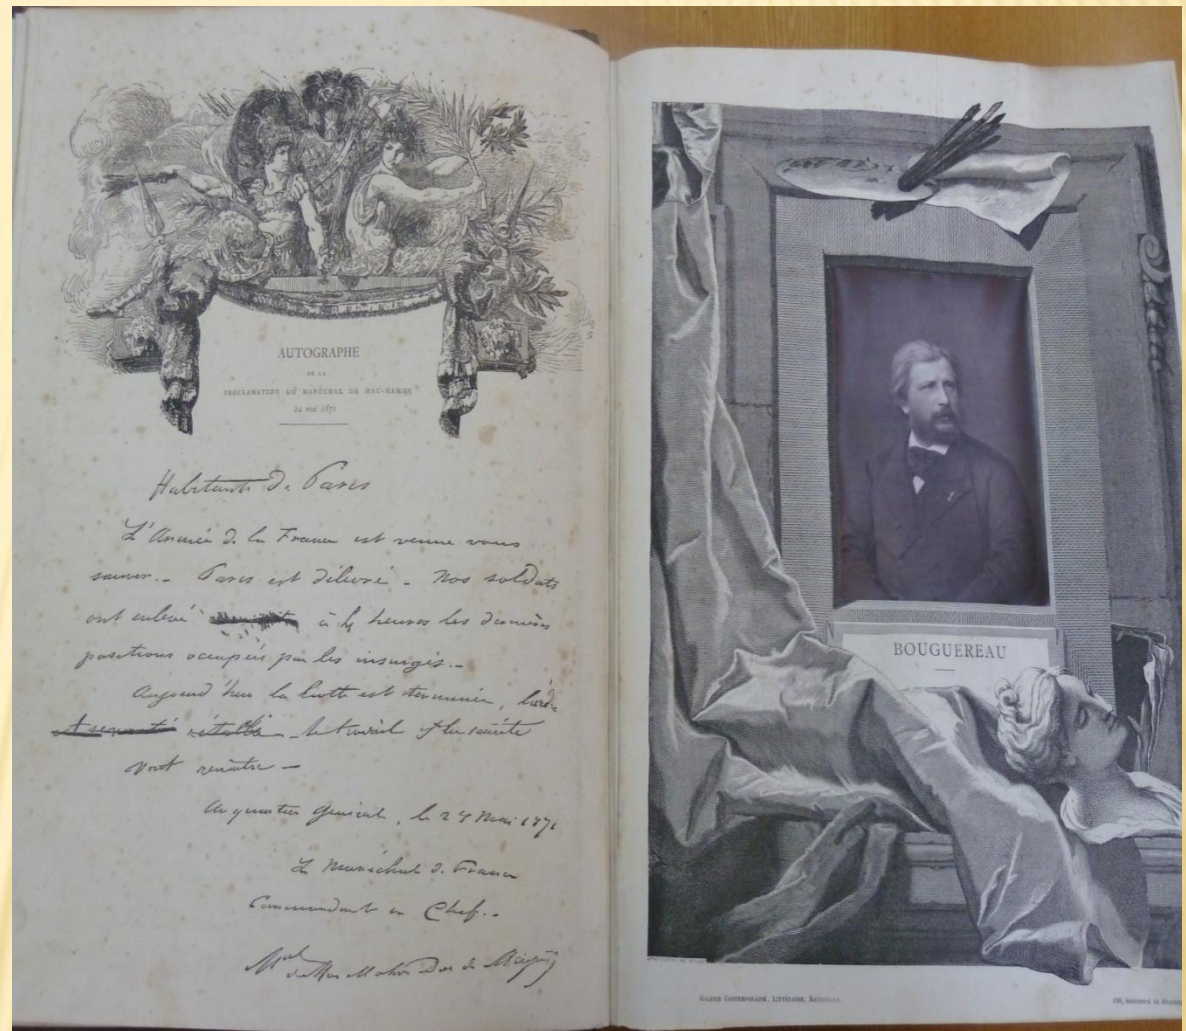 AUTOGRAPHE
DE LA
PROCLAMATION DU MARÉCHAL DE MAC-MAHON
24 mai 1871
Habitants de Paris
L'Armée de la France est venue vous
sauver. - Paris est délivré - Nos soldats
ont enlevé à 4 heures les dernières
positions occupées par les insurgés. -
Aujourd'hui la lutte est terminée, l'ordre
et sécurité rétablie - le travail et la sécurité
vont renaître -
Au quartier général, le 24 mai 1871
Le Maréchal de France
Commandant en Chef. -
Mal de Mac Mahon Duc de Magenta
BOUGUEREAU
GALERIE CONTEMPORAINE, LITTÉRAIRE, ARTISTIQUE.
126, boulevard de Magenta